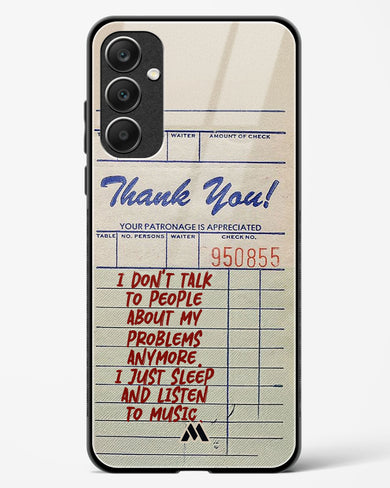 WAITER
AMOUNT OF CHECK
Thank You!
YOUR PATRONAGE IS APPRECIATED
TABLE NO. PERSONS WAITER CHECK NO.
950855
I DON'T TALK
TO PEOPLE
ABOUT MY
PROBLEMS
ANYMORE.
I JUST SLEEP
AND LISTEN
TO MUSIC.